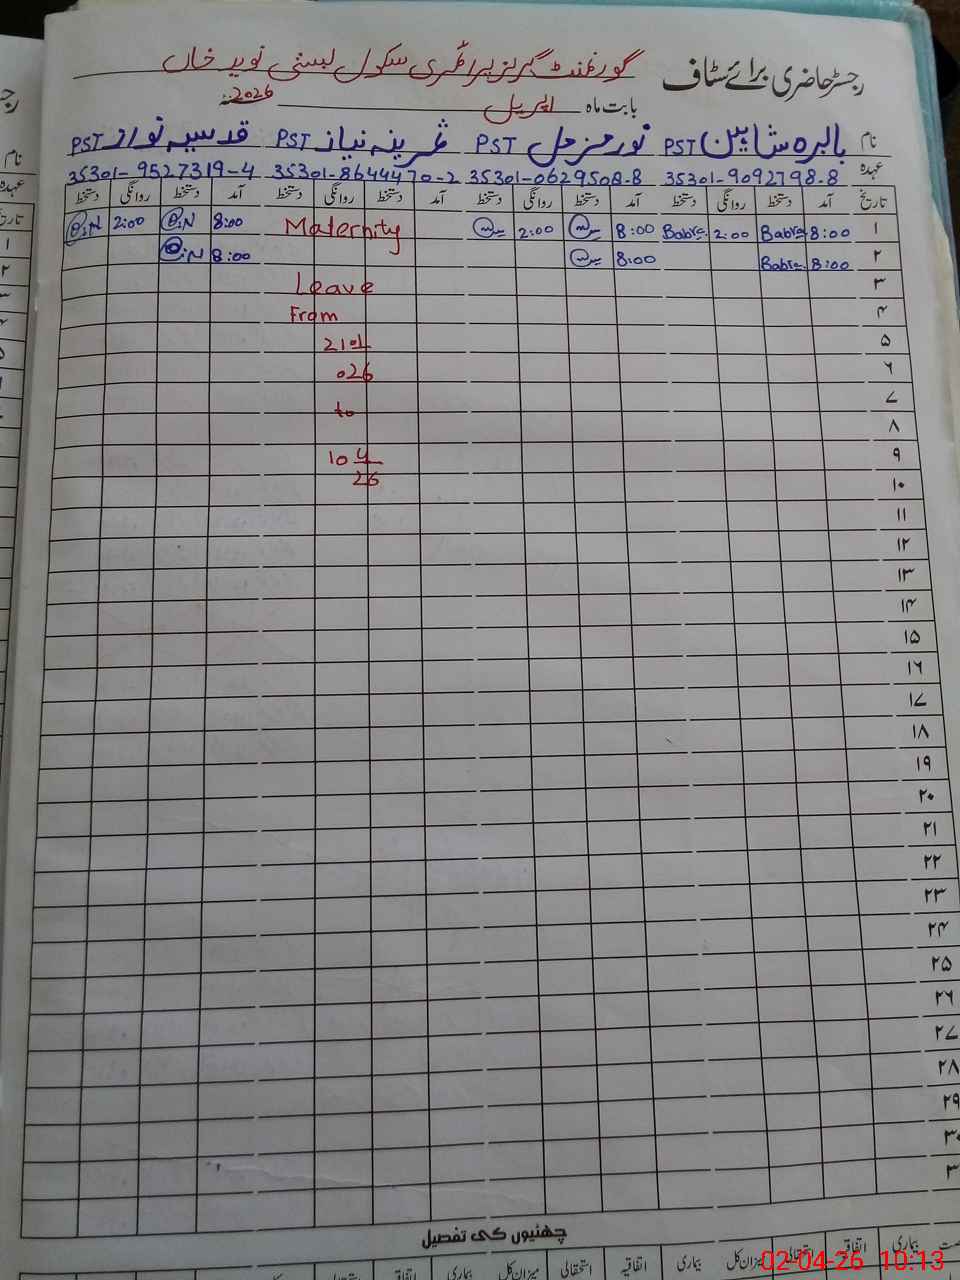 رجسٹر حاضری برائے سٹاف گورنمنٹ گرلز پرائمری سکول بستی نوید خاں
بابت ماہ اپریل 2026
نام بابرہ شاہین PST نور مزمل PST ثمرینہ نیاز PST قدسیہ نواز PST
عہدہ 35301-9092798-8 35301-0629508-8 35301-8644470-2 35301-9527319-4
تاریخ آمد دستخط روانگی دستخط آمد دستخط روانگی دستخط آمد دستخط روانگی دستخط آمد دستخط روانگی دستخط
۱ 8:00 Babra 2:00 Babra 8:00 2:00 Maternity 8:00 Q.N 2:00 Q.N
۲ 8:00 Babra 8:00 8:00 Q.N
۳ Leave
۴ From
۵ 2101
۶ 026
۷ to
۸
۹ 10 4
۱۰ 26
۱۱
۱۲
۱۳
۱۴
۱۵
۱۶
۱۷
۱۸
۱۹
۲۰
۲۱
۲۲
۲۳
۲۴
۲۵
۲۶
۲۷
۲۸
۲۹
۳۰
۳
چھٹیوں کی تفصیل
بیماری اتفاقیہ استحقاقی میزان کل بیماری اتفاقیہ استحقاقی میزان کل بیماری اتفاقیہ استحقاقی میزان کل
02-04-26 10:13